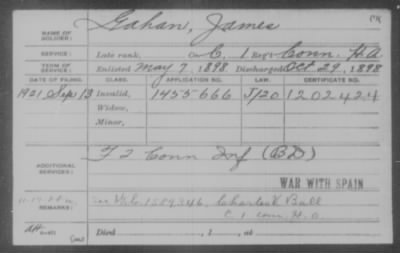 Gahan, James
NAME OF SOLDIER:
SERVICE: Late rank, Co. C, 1 Reg't Conn. H.A
TERM OF SERVICE: Enlisted May 7, 1898 Discharged Oct 29, 1898
DATE OF FILING. CLASS. APPLICATION NO. LAW. CERTIFICATE NO.
1921 Sep 13 Invalid, 1455666 J/20 1202424
Widow,
Minor,
ADDITIONAL SERVICES: F 2 Conn Inf (BD)
WAR WITH SPAIN
REMARKS: 1589346, Charles V. Ball
C. 1 Conn. H.A.
Died , 1 , at